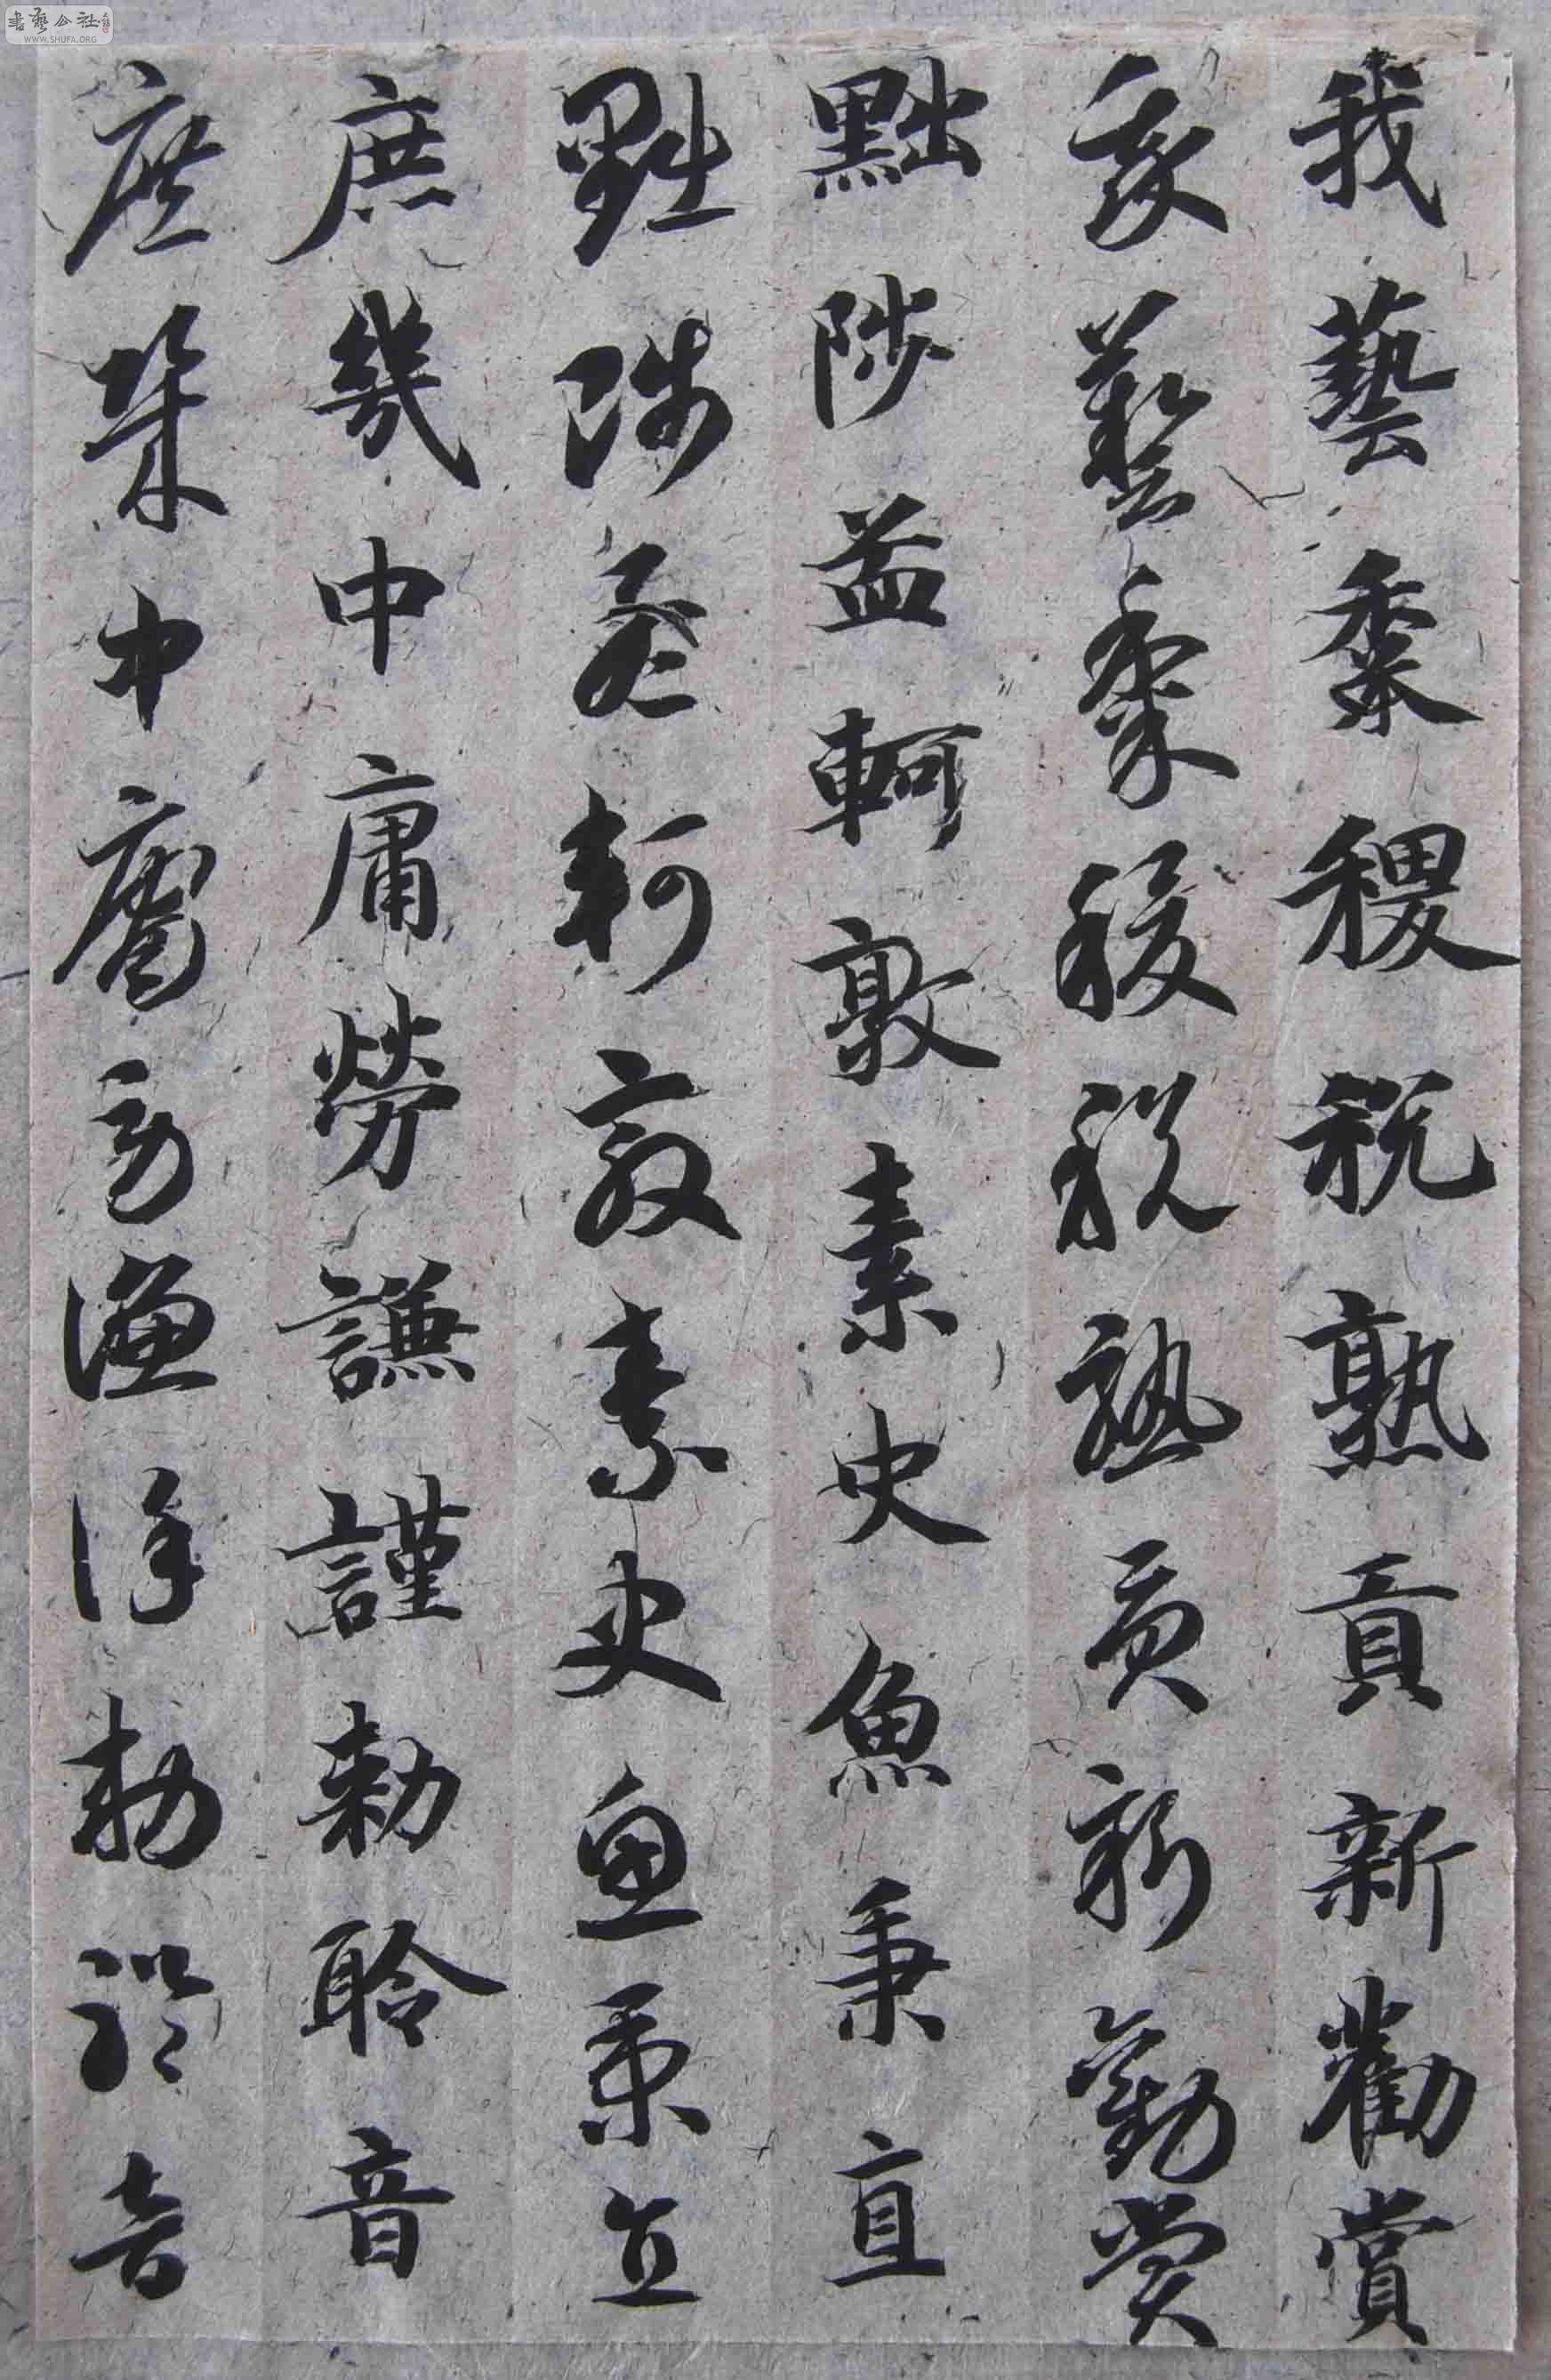 我藝黍稷稅熟貢新勸賞
我藝黍稷稅熟貢新勸賞
黜陟孟軻敦素史魚秉直
黜陟孟軻敦素史魚秉直
庶幾中庸勞謙謹勅聆音
庶幾中庸勞謙謹勅聆音
書藝公社
WWW.SHUFA.ORG